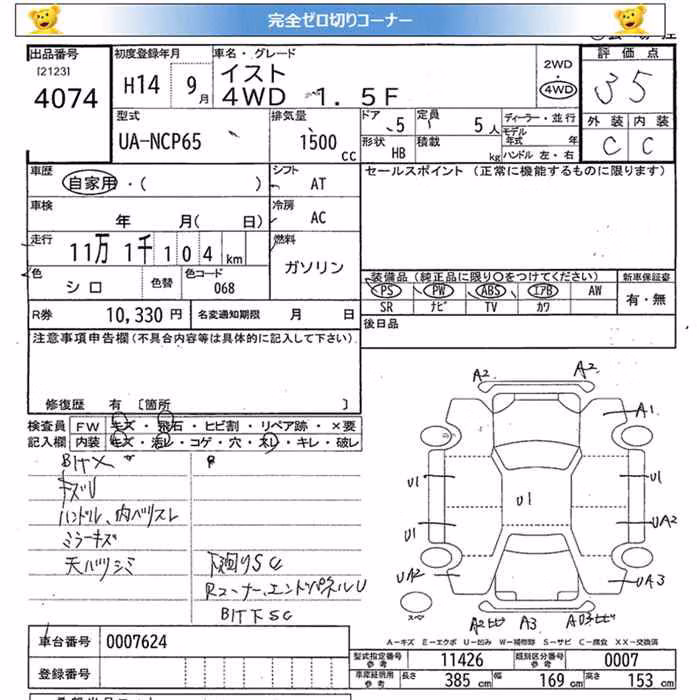 完全ゼロ切りコーナー
出品番号 初度登録年月 車名・グレード 評価点
[2123] 4074 H14 9月 イスト 2WD・4WD 35
4WD 1.5F
型式 排気量 ドア 5 定員 5人 ディーラー・並行 外装 内装
UA-NCP65 1500cc 形状 HB 積載 kg モデル年式 年 C C
ハンドル 左・右
車歴 自家用・( ) シフト AT セールスポイント(正常に機能するものに限ります)
車検 年 月( 日) 冷房 AC
走行 11万1千104km 燃料 ガソリン
色 シロ 色替 色コード 068 装備品(純正品に限り○をつけてください) 新車保証書
PS PW ABS エアB AW 有・無
R券 10,330円 名変通知期限 月 日 SR ナビ TV カワ
注意事項申告欄(不具合内容等は具体的に記入して下さい) 後日品
修復歴 有 [箇所 ]
検査員 FW キズ・飛石・ヒビ割・リペア跡・×要
記入欄 内装 キズ・汚レ・コゲ・穴・スレ・キレ・破レ
A2 A2
A1
U1 U1 U1
U1 UA2
UA2 UA3
スペア
A2ヒビ A3 ヒビ
キズU
ハンドル、内バリスレ
ミラーキズ
天バリシミ 下廻りSC
Rコーナー、エンドパネルU
A-キズ E-エクボ U-凹み W-補修跡 S-サビ C-腐食 XX-交換済
車台番号 0007624
型式指定番号 参考 11426 類別区分番号 参考 0007
登録番号 車庫証明用 参考 長さ 385cm 幅 169cm 高さ 153cm